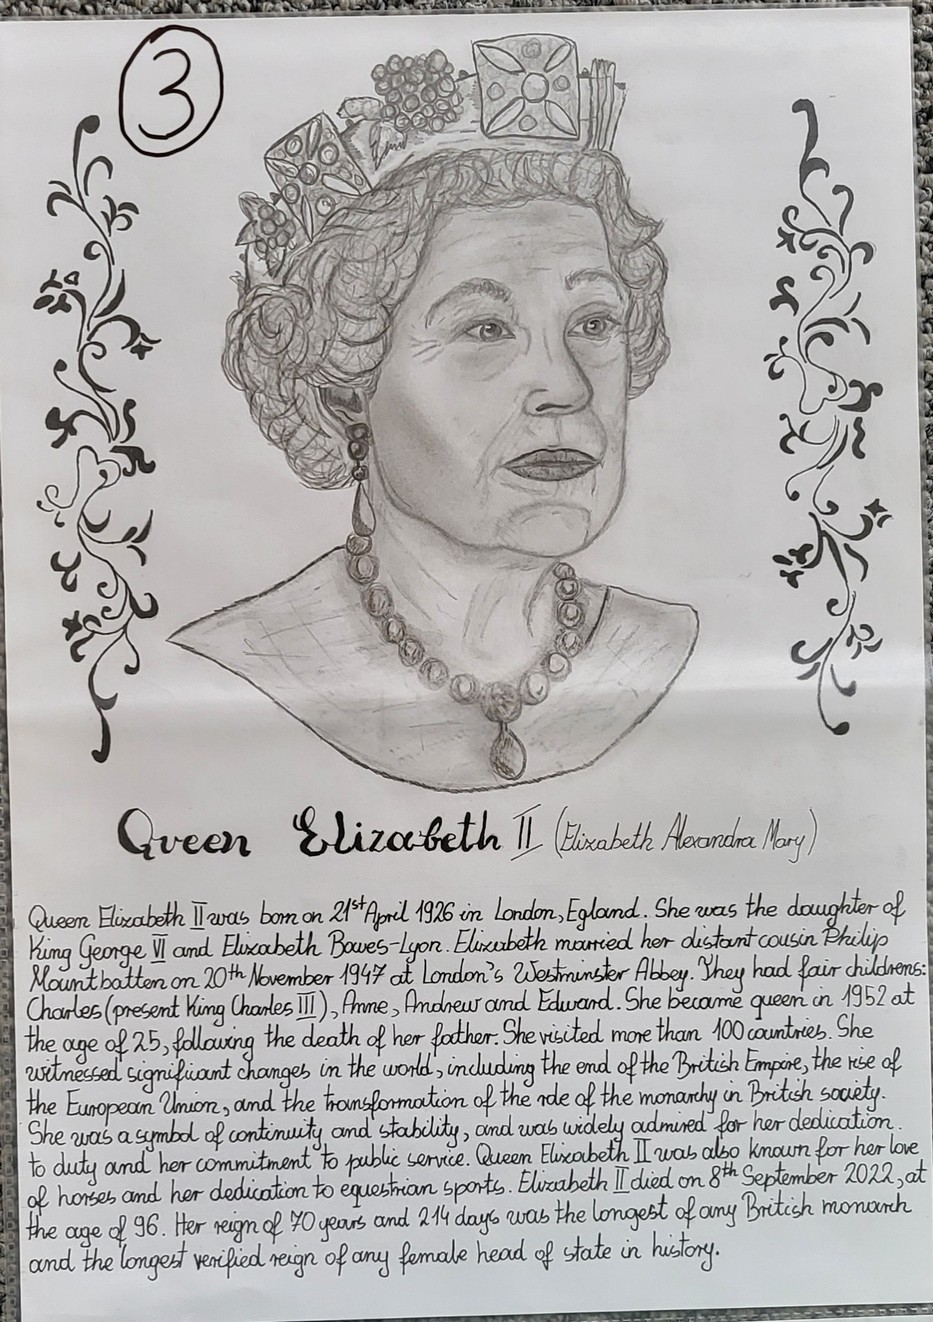 3
Queen Elizabeth II (Elizabeth Alexandra Mary)
Queen Elizabeth II was born on 21st April 1926 in London, Egland. She was the daughter of
King George VI and Elizabeth Bowes-Lyon. Elizabeth married her distant cousin Philip
Mountbatten on 20th November 1947 at London's Westminster Abbey. They had fair childrens:
Charles (present King Charles III), Anne, Andrew and Edward. She became queen in 1952 at
the age of 25, following the death of her father. She visited more than 100 countries. She
witnessed significant changes in the world, including the end of the British Empire, the rise of
the European Union, and the transformation of the role of the monarchy in British society.
She was a symbol of continuity and stability, and was widely admired for her dedication
to duty and her commitment to public service. Queen Elizabeth II was also known for her love
of horses and her dedication to equestrian sports. Elizabeth II died on 8th September 2022, at
the age of 96. Her reign of 70 years and 214 days was the longest of any British monarch
and the longest verified reign of any female head of state in history.